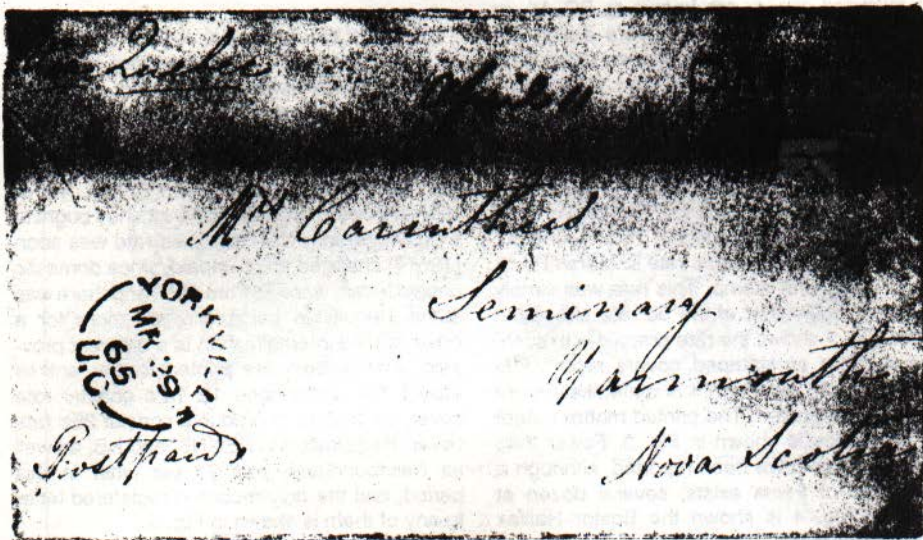 Quebec
Mrs Caruthers
Seminary
Yarmouth
Nova Scotia
YORKVILLE
MR 29
65
U.C
Post Paid